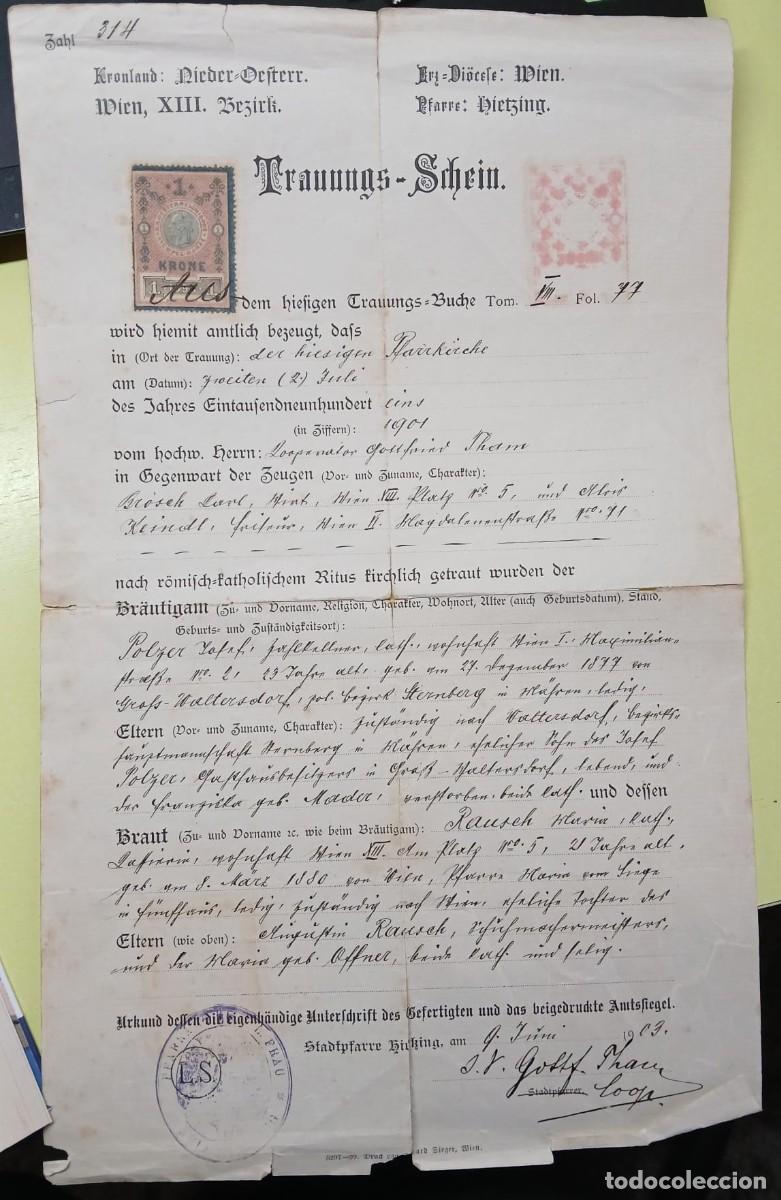 Zahl 314
Kronland: Nieder-Oesterr.
Erz-Diöcese: Wien.
Wien, XIII. Bezirk.
Pfarre: Hietzing.
Trauungs-Schein.
1
KRONE
Aus dem hiesigen Trauungs-Buche Tom. VIII. Fol. 77
wird hiemit amtlich bezeugt, dass
in (Ort der Trauung): der hiesigen Pfarrkirche
am (Datum): zweiten (2.) Juli
des Jahres Eintausendneunhundert eins
(in Ziffern): 1901
vom hochw. Herrn: Cooperator Gottfried Tham
in Gegenwart der Zeugen (Vor- und Zuname, Charakter):
Brosch Carl, Wirt, Wien XIII. Platz No. 5, und Alois
Keindl, Friseur, Wien VI. Magdalenenstraße No. 71
nach römisch-katholischem Ritus kirchlich getraut wurden der
Bräutigam (Zu- und Vorname, Religion, Charakter, Wohnort, Alter (auch Geburtsdatum), Stand,
Geburts- und Zuständigkeitsort):
Polzer Josef, Zahlkellner, kath., wohnhaft Wien I. Maximilian-
straße No. 2, 23 Jahre alt, geb. am 27. Dezember 1877 von
Groß-Waltersdorf, pol. Bezirk Sternberg in Mähren, ledig,
Eltern (Vor- und Zuname, Charakter): zuständig nach Waltersdorf, Bezirks-
hauptmannschaft Sternberg in Mähren, ehelicher Sohn des Josef
Polzer, Gasthausbesitzers in Groß-Waltersdorf, lebend, und
der Franziska geb. Mader, verstorben, beide kath. und dessen
Braut (Zu- und Vorname ec. wie beim Bräutigam): Rausch Maria, kath.,
Kassierin, wohnhaft Wien XIII. Am Platz No. 5, 21 Jahre alt,
geb. am 8. März 1880 von Wien, Pfarre Maria vom Siege
in Fünfhaus, ledig, zuständig nach Wien, eheliche Tochter des
Eltern (wie oben): Augustin Rausch, Schuhmachermeisters,
und der Maria geb. Offner, beide kath. und selig.
Urkund dessen die eigenhändige Unterschrift des Gefertigten und das beigedruckte Amtssiegel.
Stadtpfarre Hietzing, am 9. Juni 1903.
L.S.
Gottf. Tham
Stadtpfarrer
Coop.
Sieger, Wien.
todocoleccion